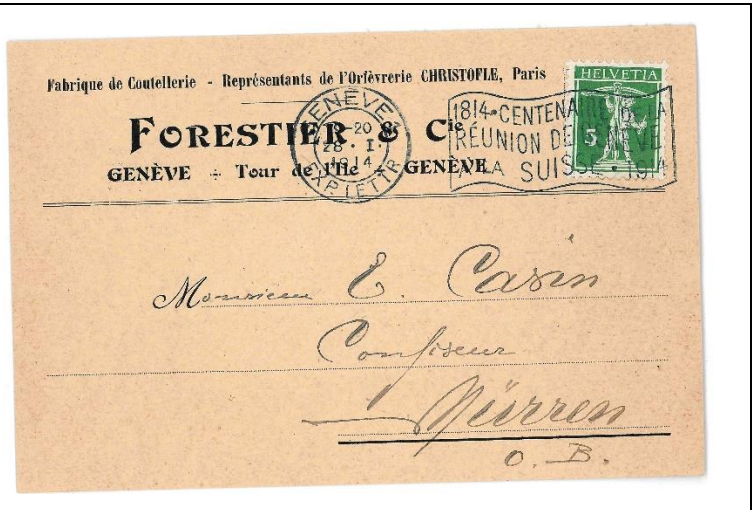 Fabrique de Coutellerie - Représentants de l'Orfèvrerie CHRISTOFLE, Paris
FORESTIER & Cie
GENÈVE ÷ Tour de l'Ile ÷ GENÈVE
GENÈVE
-20
28. I.
1914
EXP. LETTR
1814 • CENTENAIRE DE LA
RÉUNION DE GENÈVE
A LA SUISSE • 1914
HELVETIA
5
Monsieur E. Casin
Confiseur
Mürren
O. B.